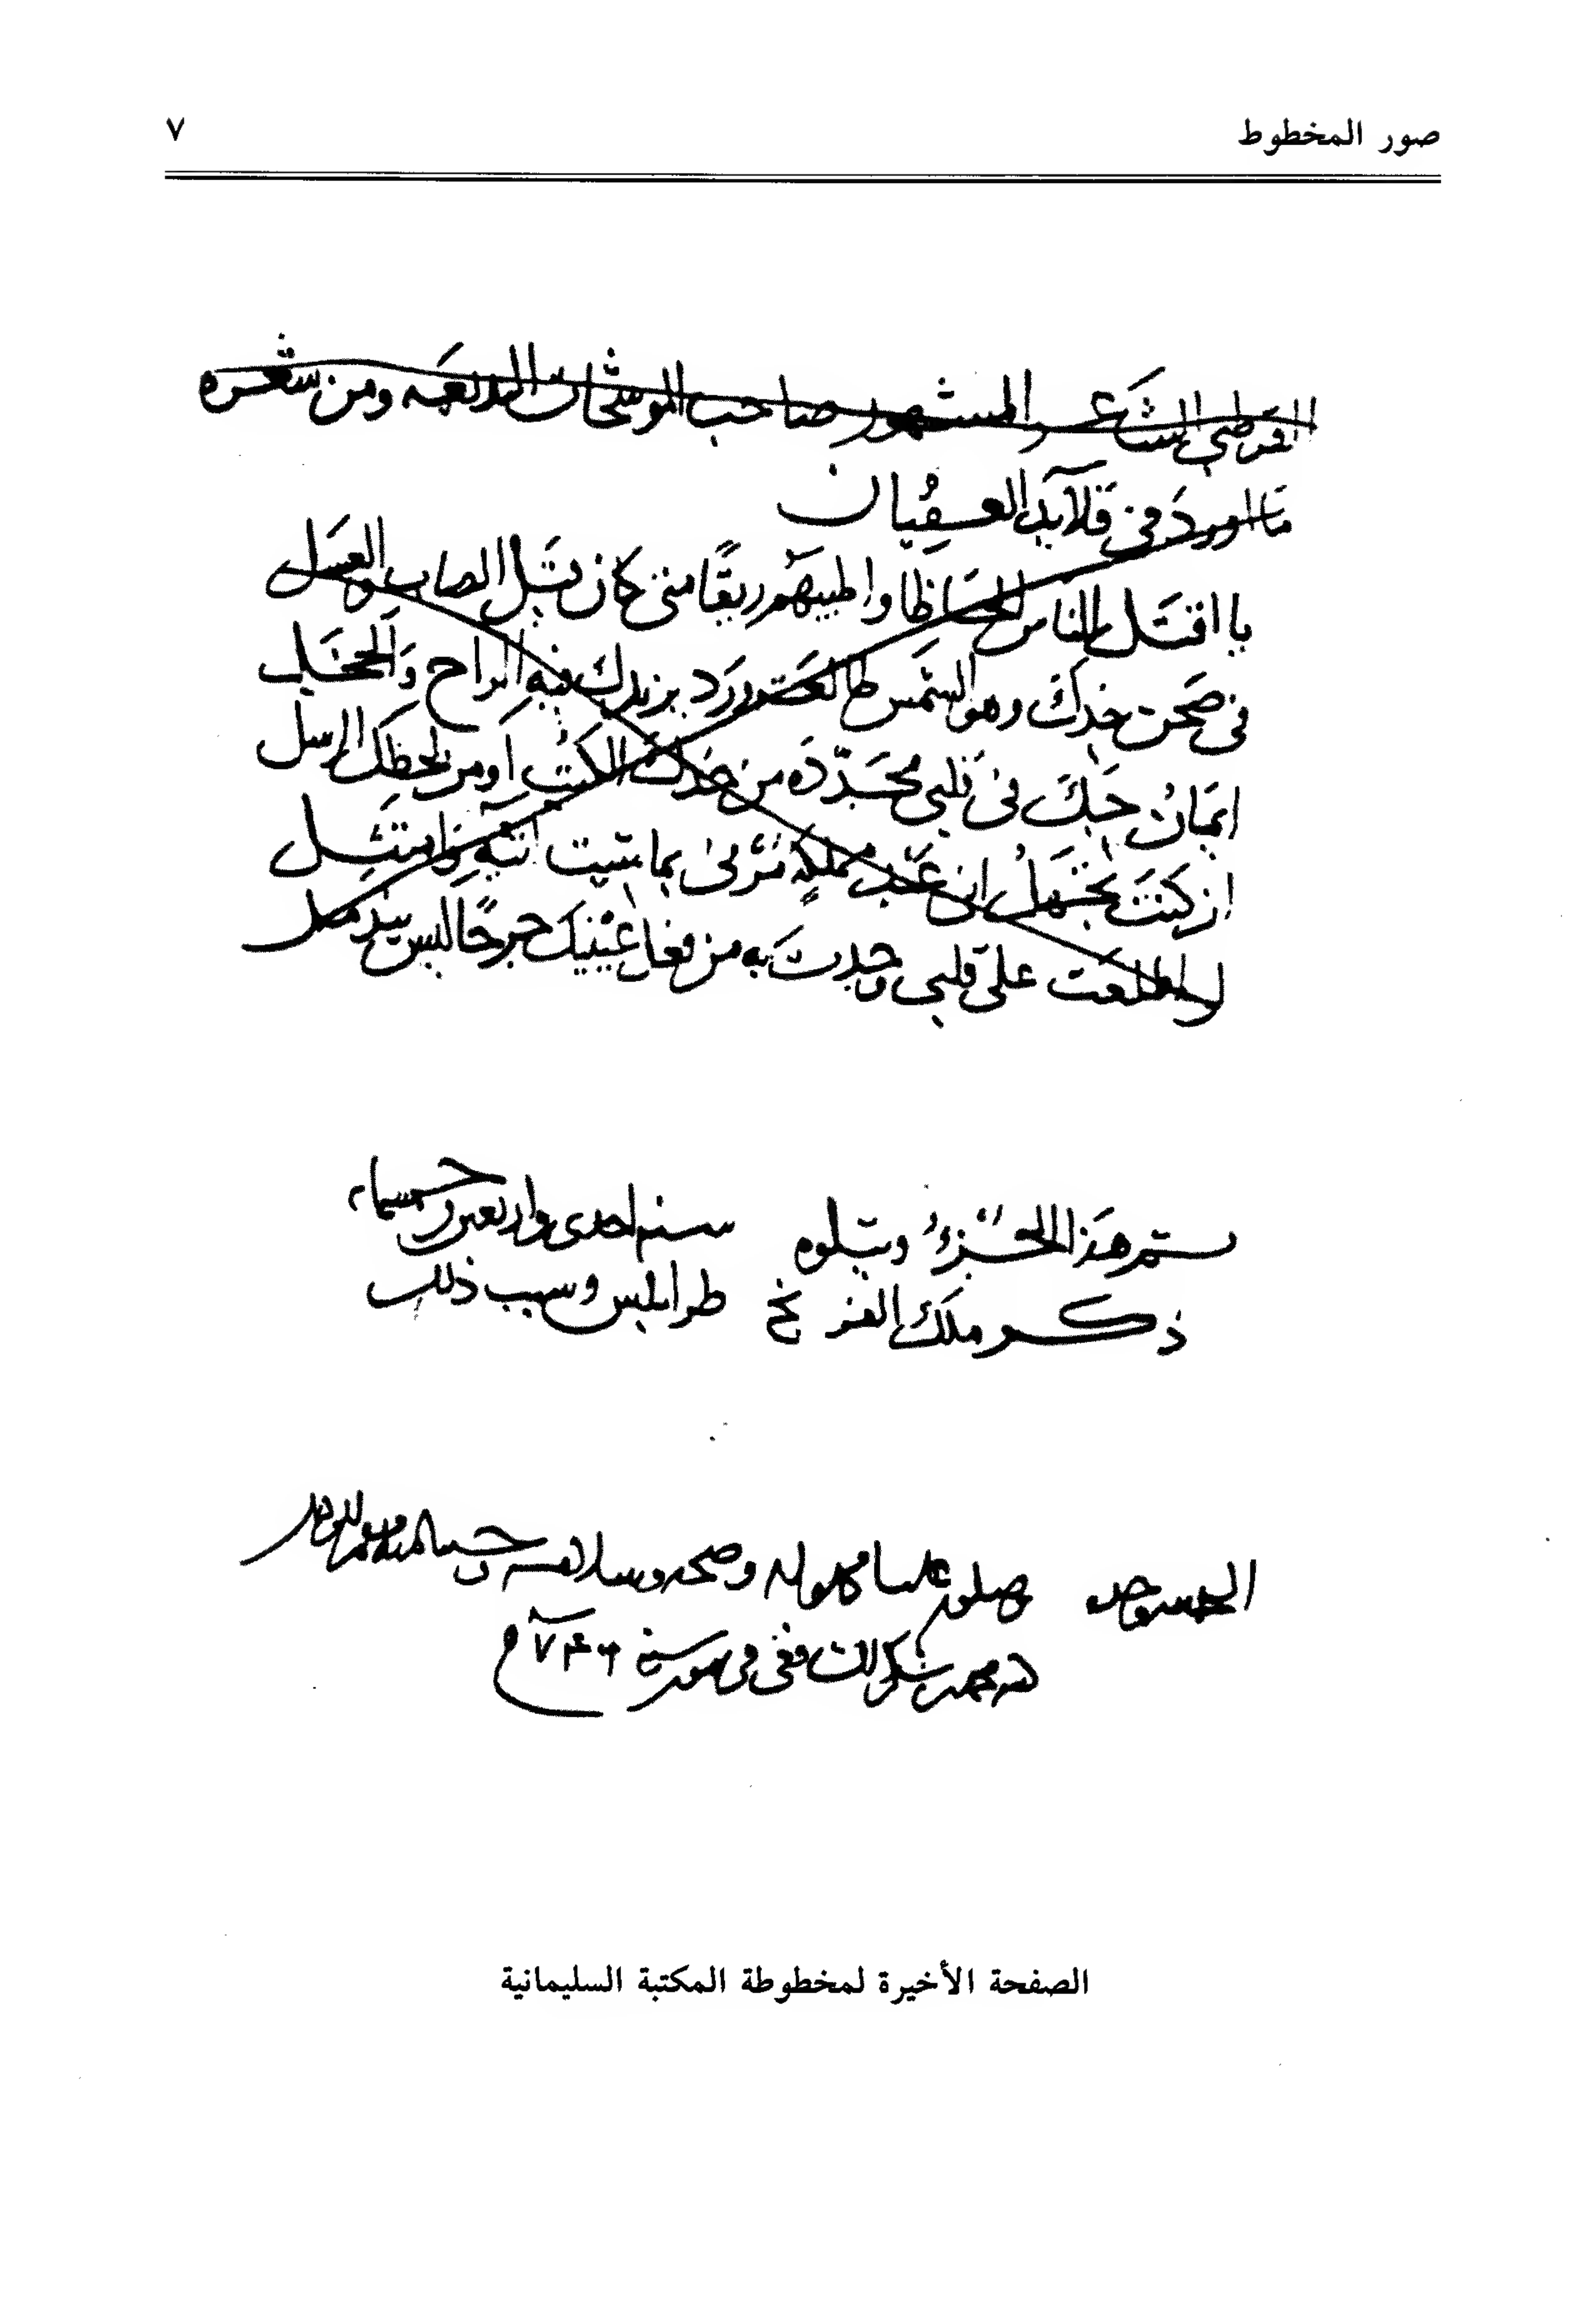 صور المخطوط ٧
القرطبي الشاعر المشهور صاحب الموشحات البديعه ومن شعره
ما اورد في قلآيد العقيان
يا اقتل الناس الحاظا واطيبهم ريقًا متى كان فيك الصاب والعسل
في صحن خدك وهو الشمس طالعة ورد يزيدك فيه الراح والخجل
ايمان حبك في قلبي مجدده من خدك الكتب او من لحظك الرسل
ان كنت تجهل اني عبد مملكة مرني بما شيت آتيه وامتثل
لو اطلعت على قلبي وجدت به من فعل عينيك جرحًا ليس يندمل
تم هذا الجزء ويتلوه سنه احدى واربعين وخمسمايه
ذكر ملك الفرنج طرابلس وسبب ذلك
الحمد لله وحده وصلوته على سيدنا محمد واله وصحبه وسلامه
سنة ٧٤٦
الصفحة الأخيرة لمخطوطة المكتبة السليمانية